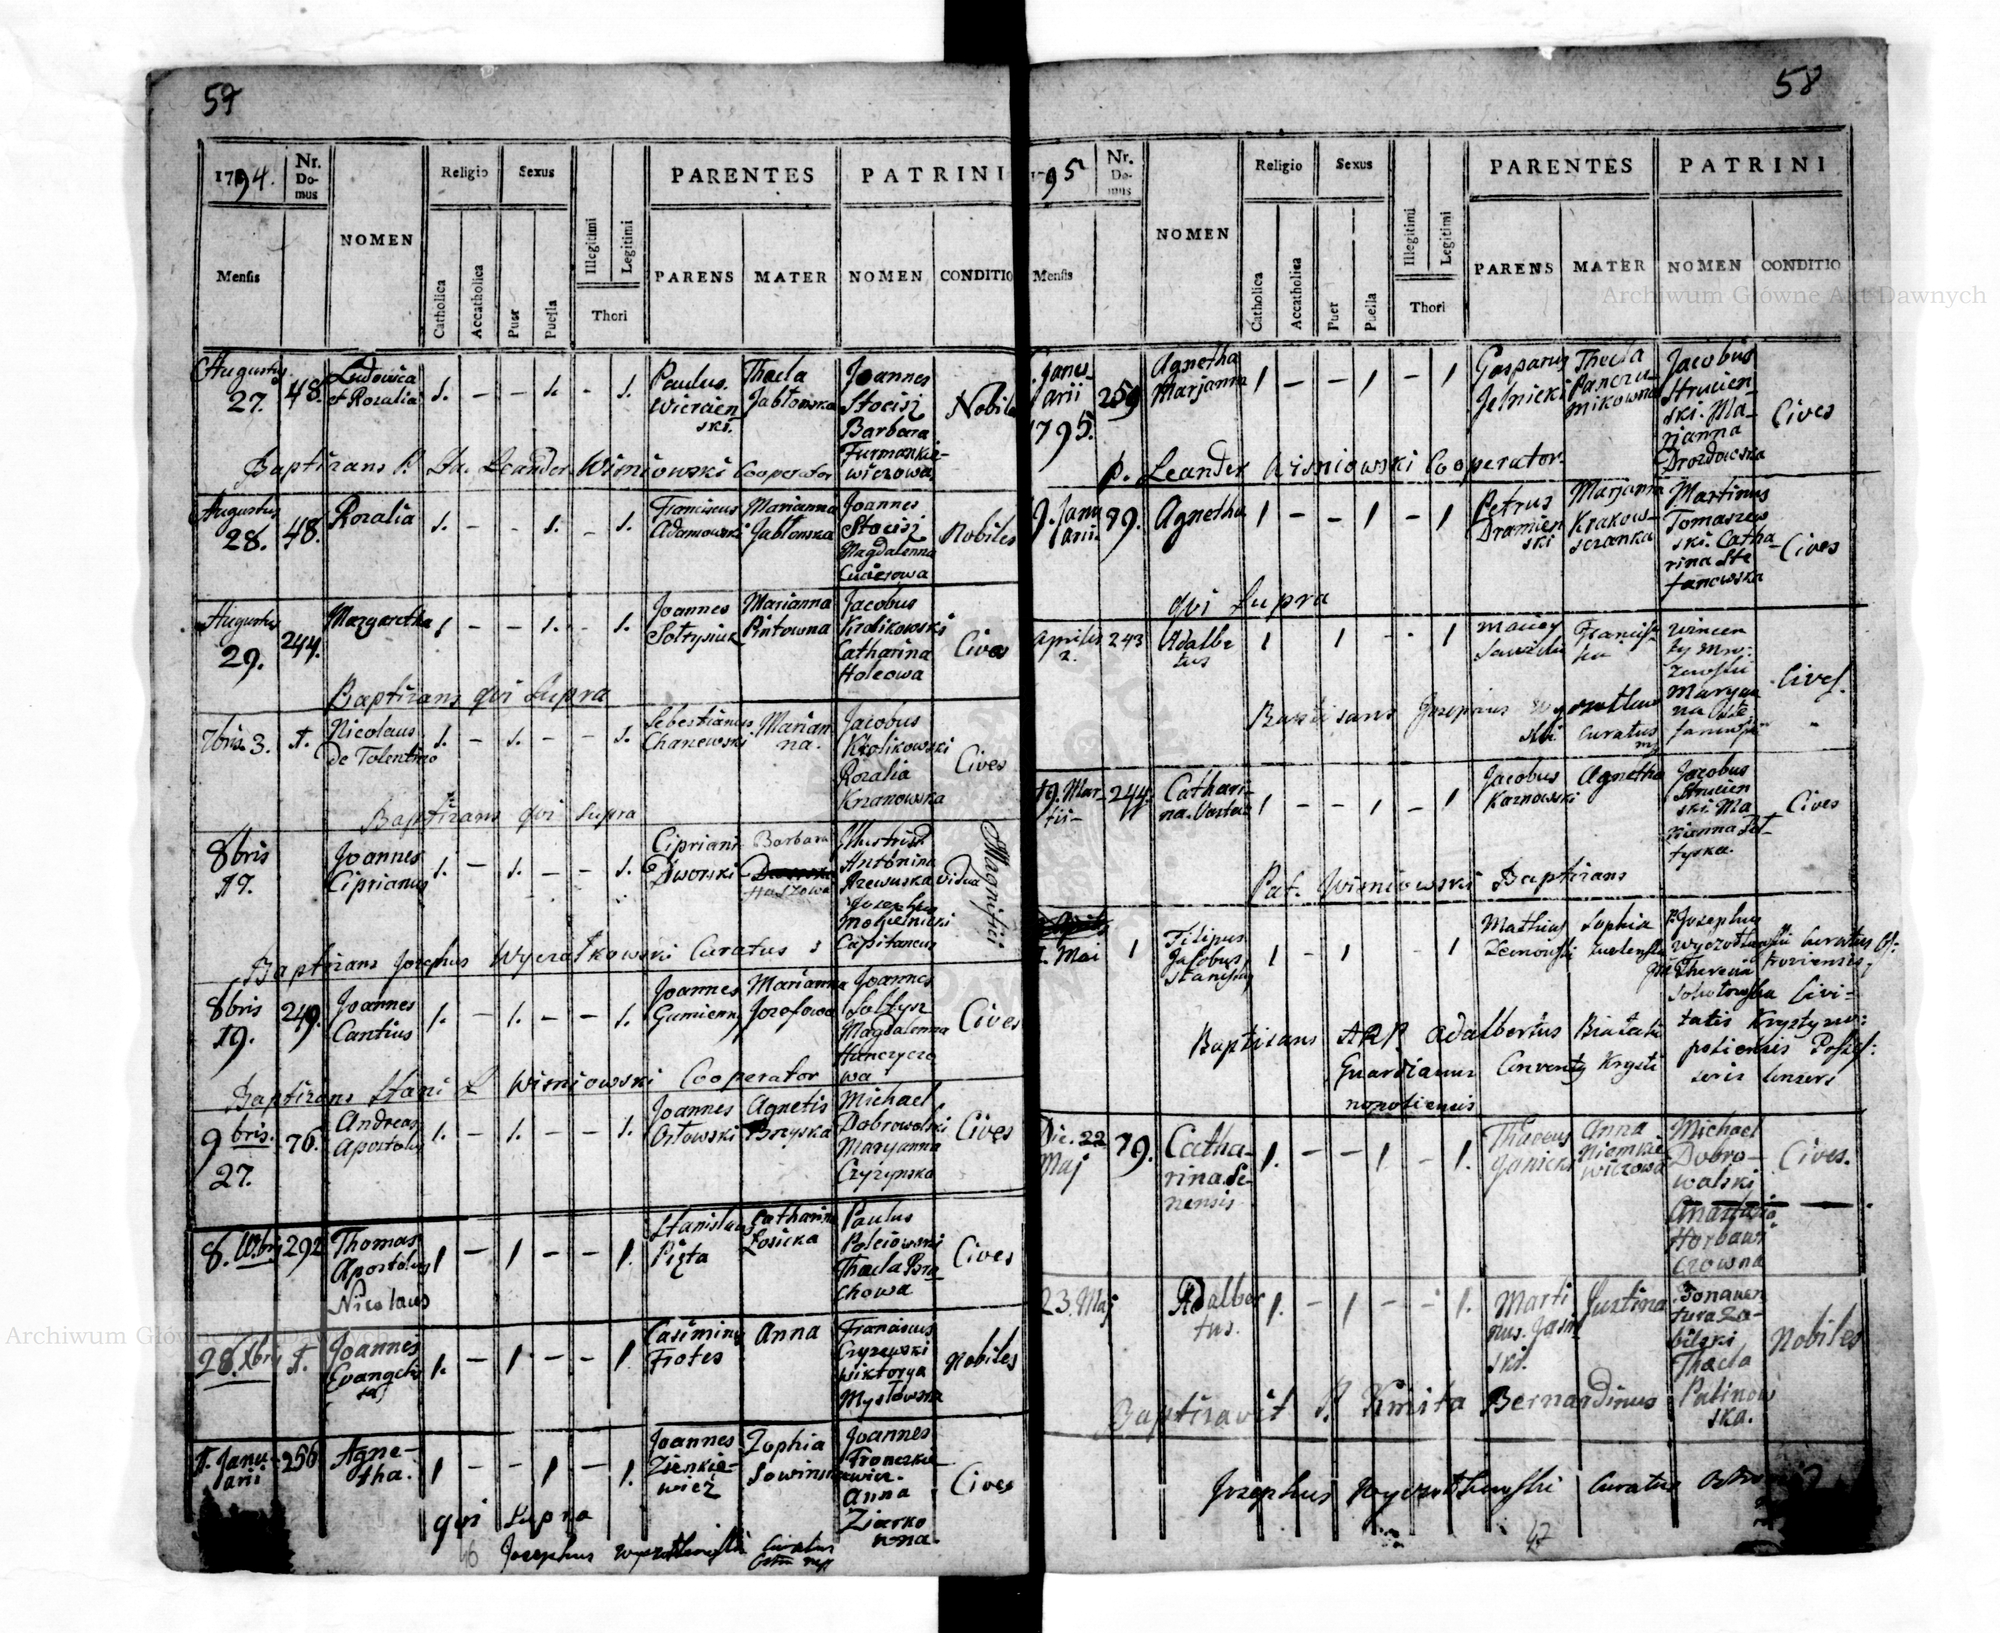 57
1794.
Nr. Domus
Religio
Sexus
PARENTES
PATRINI
Mensis
NOMEN
Catholica
Accatholica
Puer
Puella
Illegitimi
Legitimi
Thori
PARENS
MATER
NOMEN
CONDITIO
Augustus 27. 48. Ludovica et Rozalia 1. - - 1. - 1. Paulus Wiercienski. Thecla Jabłonska Joannes Stocisz Barbara Furmankiewiczowa Nobiles
Baptizans Leander Wisniowski Cooperator
Augustus 28. 48. Rozalia 1. - - 1. - 1. Franciscus Adamowski Marianna Jabłonska Joannes Stocisz Magdalenna Nobiles
Augustus 29. 244. Margaretha 1 - - 1. - 1. Joannes Sołtysiuk Marianna Pintowna Jacobus Krolikowski Catharina Holcowa Cives
Baptizans qvi Supra
7bris 3. 1. Nicolaus de Tolentino 1. - 1. - - 1. Sebestianus Chanewski Marianna. Jacobus Krolikowski Rozalia Krzanowska Cives
Baptizans qvi Supra
8bris 17. Joannes Ciprianus 1. - 1. - - 1. Cipriani Dworski Barbara Antonina Rzewuska vidua Josephus Mogielnicki Capitaneus Magnifici
Baptizans Josephus Wyczałkowski Curatus
8bris 19. 249. Joannes Cantius 1. - 1. - - 1. Joannes Gumienny Marianna Jozefowa Joannes Sołtysz Magdalenna Hanczyczowa Cives
Baptizans Wisniowski Cooperator
9bris. 27. 76. Andreas Apostolus 1. - 1. - - 1. Joannes Orłowski Agnetis Brzyska Michael Dobrowolski Maryanna Czyżynska Cives
8. Xbris 292 Thomas Apostolus Nicolaus 1 - 1 - - 1. Stanislaus Pięta Catharina Łosicka Paulus Polciowski Thecla Cives
28. Xbris 1. Joannes Evangelista 1. - 1 - - 1 Casimirus Frotes Anna Franciscus Czyzewski Wiktorya Mysłowska Nobiles
1. Januarii 256 Agnetha. 1 - - 1 - 1. Joannes Zienkiewicz Zophia Sowinska Joannes Fronczkiewicz. Anna Ziarkowna. Cives
qvi Supra
46 Josephus Curatus
58
1795
Nr. Domus
Religio
Sexus
PARENTES
PATRINI
Mensis
NOMEN
Catholica
Accatholica
Puer
Puella
Illegitimi
Legitimi
Thori
PARENS
MATER
NOMEN
CONDITIO
Archiwum Główne Akt Dawnych
Januarii 1795. 259 Agnetha Marjanna 1 - - 1 - 1 Gasparus Jelnicki Thecla Jacobus Strucienski. Marianna Drozdowska Cives
P. Leander Wisniowski Cooperator
Januarii. 79. Agnetha 1 - - 1 - 1 Petrus Dramienski Marjanna Krakowszczanka Martinus Tomaszewski. Catharina Stefanowska Cives
qvi Supra
Aprilis 2. 243 Adalbertus 1 1 - 1 Maciey Franciszka Cives.
Baptisans Josephus Curatus
19. Martii 244. Catharina. 1 - - 1 - 1 Jacobus Karnowski Agnetha Jacobus Strucienski. Marianna Cives
Pat. Wisniowski Baptizans
1. Mai 1 Filipus Jacobus Stanislaus 1 - 1 - 1 Mathius Sophia Josephus Curatus Theresia Civitatis
Baptisans ARP Adalbertus
Guardianus Conventus
Die. 22 Maj 79. Catharina Senensis 1. - - 1 - 1. Thadeus Janicki Anna Niemkiewiczowa Michael Dobrowalski Anastasia Horbawczowna Cives.
23. Maj Adalbertus. 1. - 1 - - 1. Martinus. Jasinski. Justina Bonaventura Zabilski Thecla Palinowska. Nobiles
Baptizavit P. Kmita Bernardinus
Josephus Curatus
47
Archiwum Główne Akt Dawnych